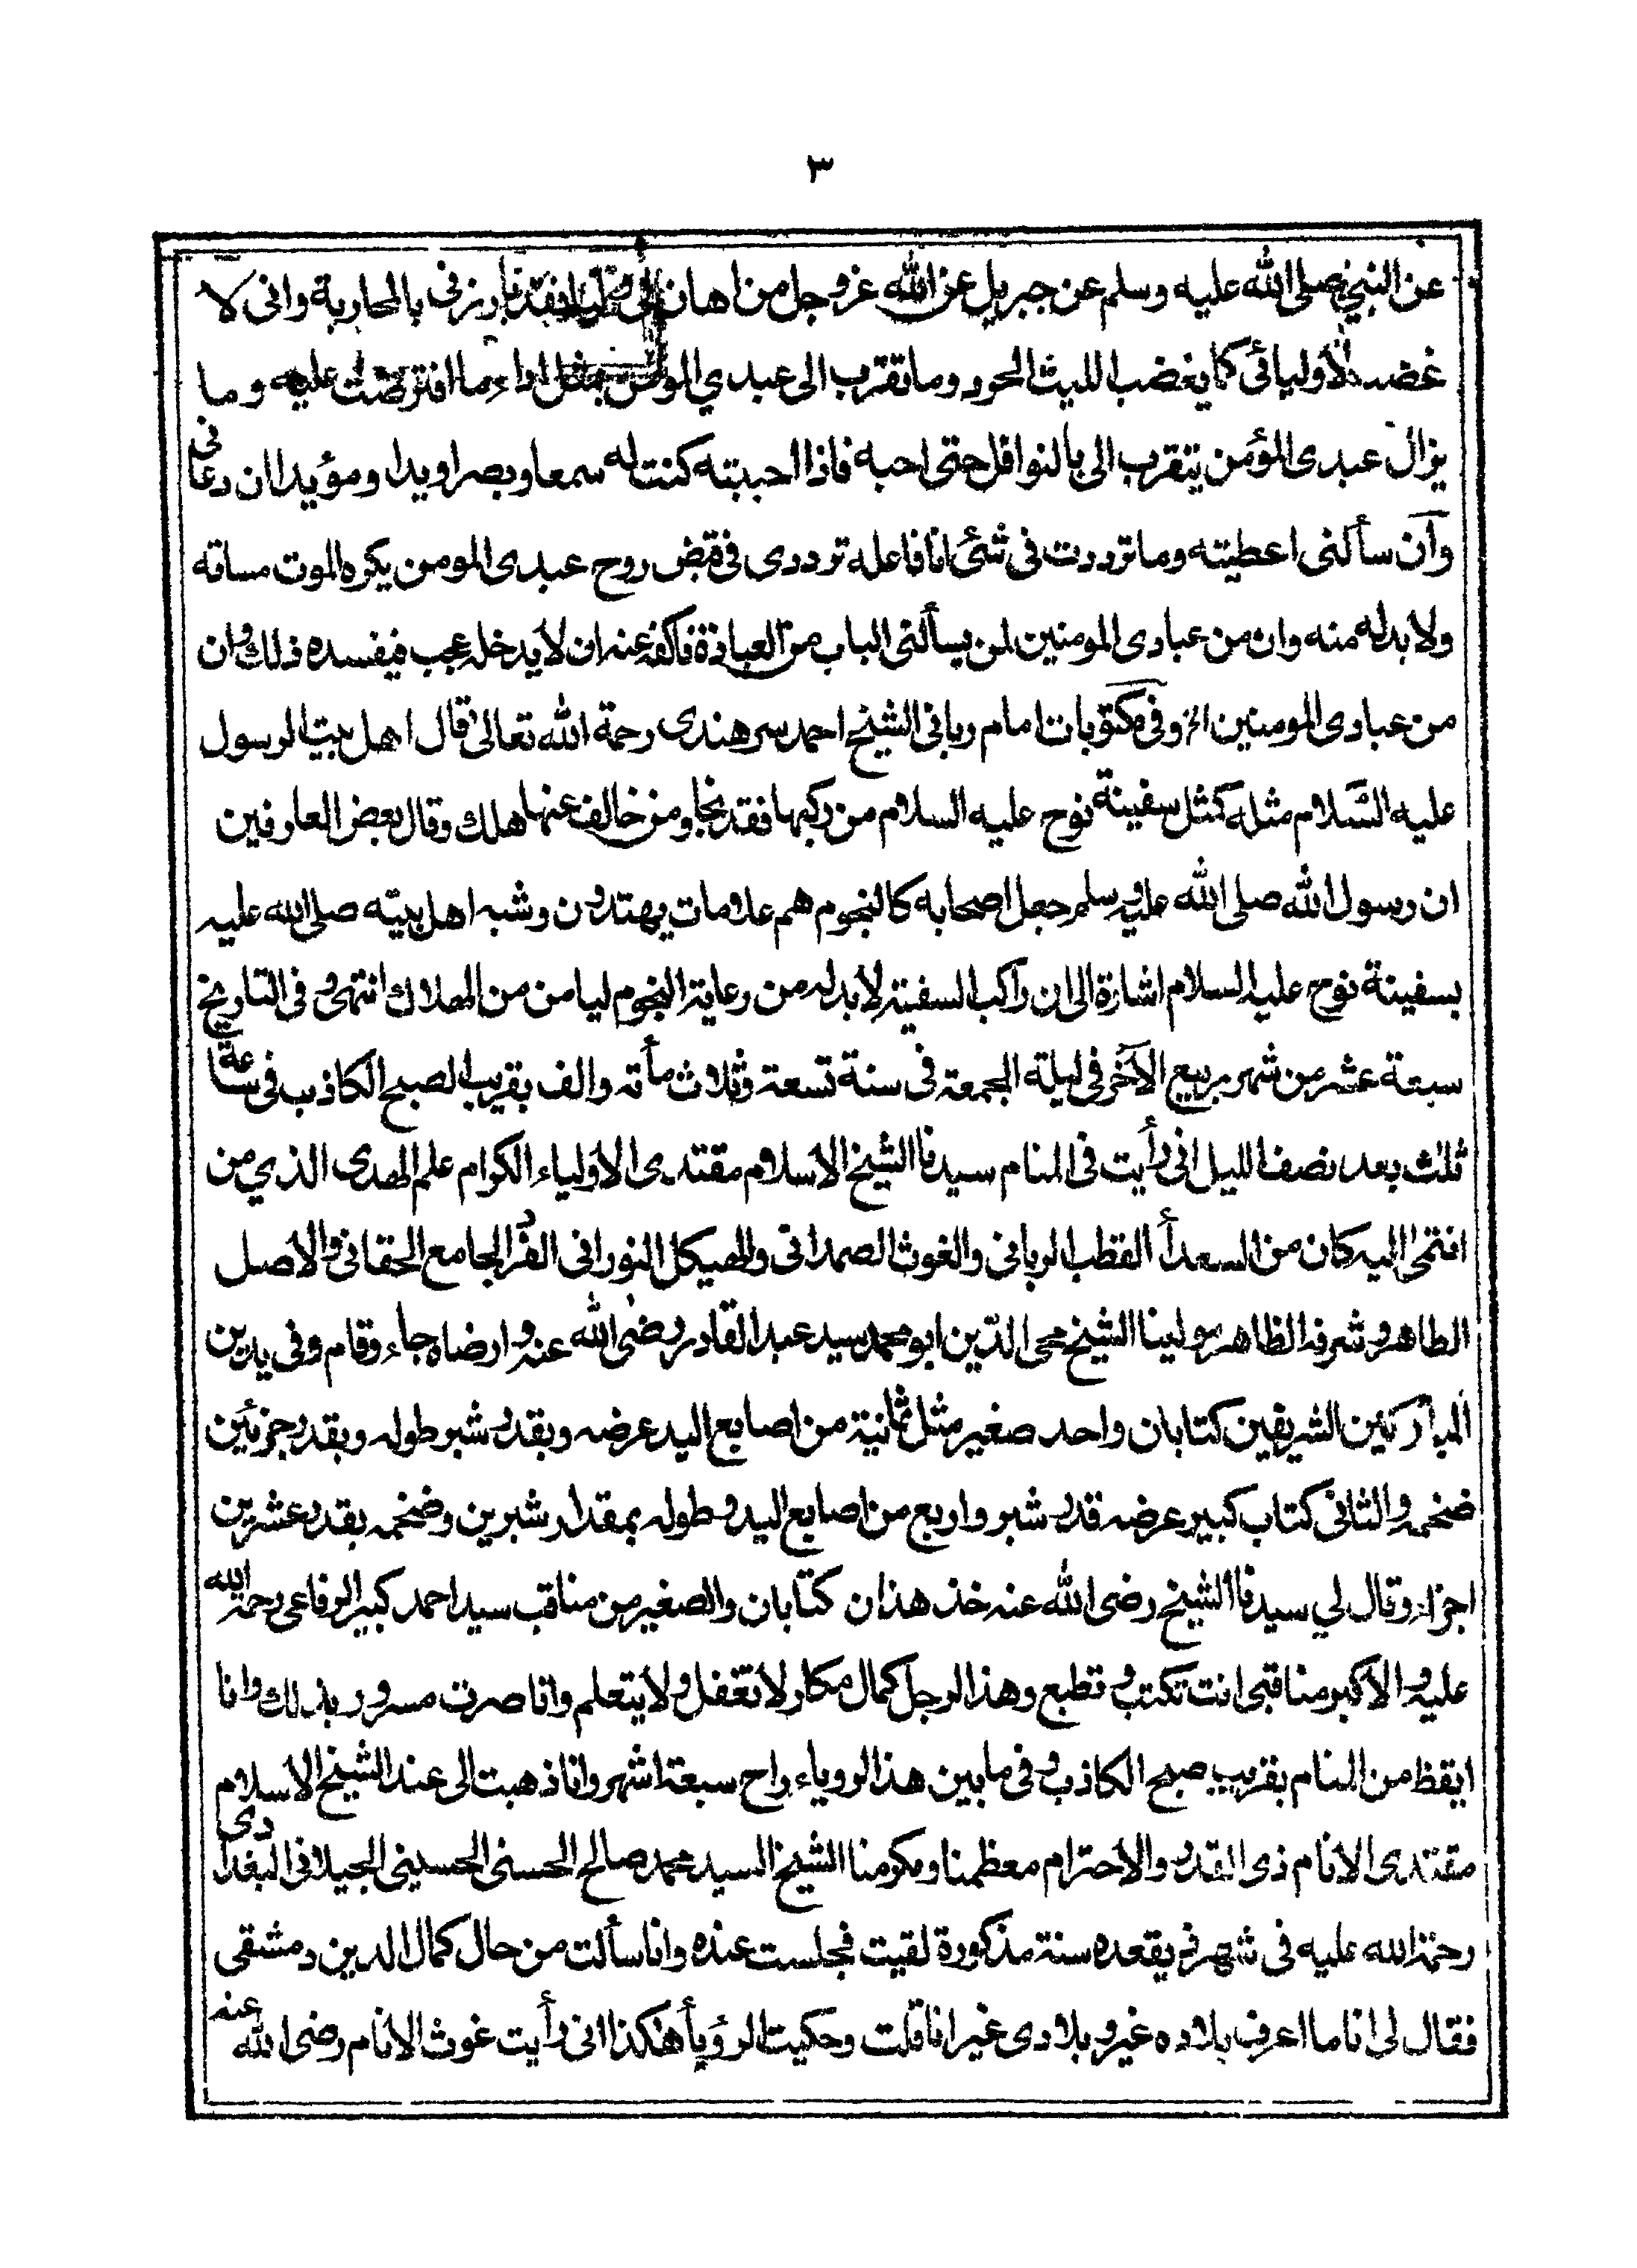 ٣
عن النبي صلى الله عليه وسلم عن جبريل عن الله عز وجل من اهان لى وليا فقد بارزنى بالمحاربة وانى لا
غضب لاوليائى كما يغضب الليث الحرد وما تقرب الى عبدي المومن بمثل اداء ما افترضت عليه وما
يزال عبدى المؤمن يتقرب الى بالنوافل حتى احبه فاذا احببته كنت له سمعا وبصرا ويدا ومؤيدا ان دعانى
وان سألنى اعطيته وما ترددت فى شئ انا فاعله ترددى فى قبض روح عبدى المومن يكره الموت مساته
ولا بد له منه وان من عبادى المومنين لمن يسألنى الباب من العبادة فاكفه عنه ان لا يدخله عجب فيفسده ذلك وان
من عبادى المومنين الخ وفى مكتوبات امام ربانى الشيخ احمد سرهندى رحمة الله تعالى قال اهل بيت الرسول
عليه السلام مثله كمثل سفينة نوح عليه السلام من ركبها فقد نجا ومن خالف عنها هلك وقال بعض العارفين
ان رسول الله صلى الله عليه وسلم جعل اصحابه كالنجوم هم علامات يهتدون وشبه اهل بيته صلى الله عليه
بسفينة نوح عليه السلام اشارة الى ان راكب السفينة لا بد له من رعاية النجوم ليامن من الهلاك انتهى وفى التاريخ
سبعة عشر من شهر ربيع الآخر فى ليلة الجمعة فى سنة تسعة وثلاث مأته والف بقريب الصبح الكاذب فى ساعة
ثلث بعد نصف الليل انى رأيت فى المنام سيدنا الشيخ الاسلام مقتدى الاولياء الكرام علم الهدى الذي من
انتمى اليه كان من السعدأ القطب الربانى والغوث الصمدانى والهيكل النورانى الفرد الجامع الحقانى والاصل
الطاهر وشرفه الظاهر مولينا الشيخ محى الدين ابو محمد سيد عبد القادر رضى الله عنه وارضاه جاء وقام وفى يدين
المباركين الشريفين كتابان واحد صغير مثل ثمانية من اصابع اليد عرضه وبقدر شبر طوله وبقدر جزئين
ضخمه والثانى كتاب كبير عرضه قدر شبر واربع من اصابع اليد وطوله بمقدار شبرين وضخمه بقدر عشرين
اجزاء وقال لي سيدنا الشيخ رضى الله عنه خذ هذان كتابان والصغير من مناقب سيد احمد كبير الرفاعى رحمة الله
عليه والاكبر مناقبى انت تكتب وتطبع وهذا الرجل كمال مكار لا تغفل ولا يتعلم وانا صرت مسرور بذلك وانا
ايقظ من المنام بقريب صبح الكاذب وفى ما بين هذا الروياء راح سبعة اشهر وانا ذهبت الى عند الشيخ الاسلام
مقتدى الانام ذى القدر والاحترام معظمنا ومكرمنا الشيخ السيد محمد صالح الحسنى الحسينى الجيلانى البغدادى
رحمة الله عليه فى شهر ذيقعده سنة مذكورة لقيت فجلست عنده وانا سألت من حال كمال الدين دمشقى
فقال لى انا ما اعرف بلاده غير وبلادى غير انا قلت وحكيت الرؤيأ هنكذا انى رأيت غوث الانام رضى الله عنه